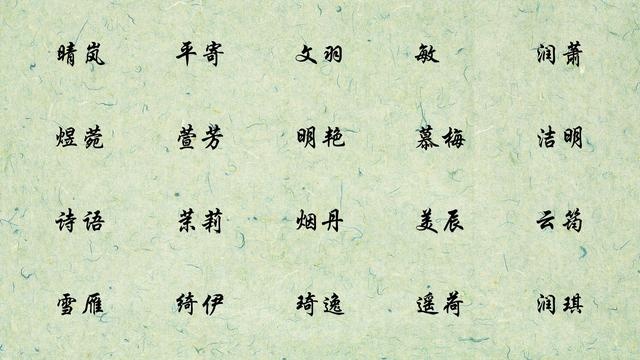 晴岚 平寄 文羽 敏 润萧
煜菀 萱芳 明艳 慕梅 洁明
诗语 茉莉 烟丹 美辰 云筠
雪雁 绮伊 琦逸 遥荷 润琪